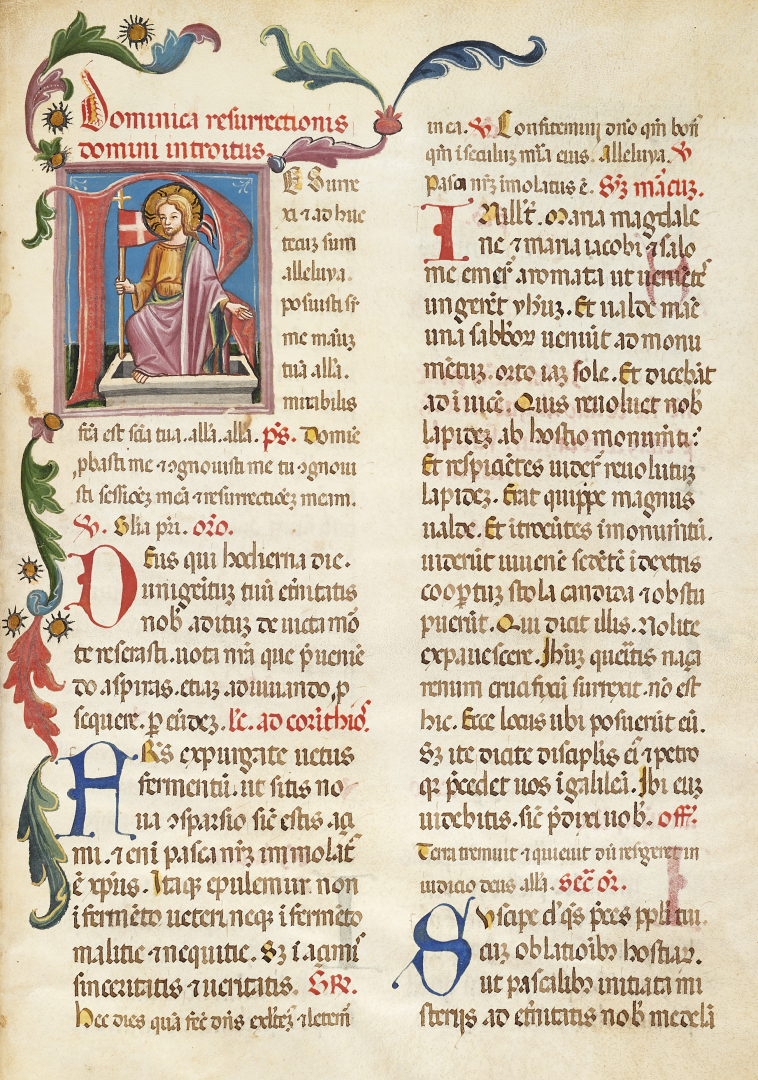 Dominica resurrectionis
domini introitus.
ESurre
xi ⁊ adhuc
tecuȝ sum
.alleluya.
posuisti sr̄
me manuȝ
tuā all̄a.
mirabilis
fc̄a est sci̅a tua. all̄a. all̄a. ps̄. Domine
ꝓbasti me ⁊ ꝯgnouisti me tu ꝯgnoui
sti sessioeȝ meā ⁊ resurrectioeȝ meam.
V. Gl̄ia pr̄i. oro̅.
DEus qui hodierna die.
unigeituȝ tuū et̄nitatis
nob̅ adituȝ deuicta mo̅
te reserasti. uota nr̄a que p̄uenie̅
do aspiras. etiaȝ adiuuando ꝓ
sequere. ꝑ eūdeȝ. lc̄. ad corīthio̅.
FR̄s expurgate uetus
fermentū. ut sitis no
ua ꝯsparsio sic̄ estis açi
mi. ⁊ eni̅ pasca nr̄ȝ immolat̄
ē xp̄us. Itaqȝ epulemur. non
ī ferme̅to ueteri. neqȝ ī ferme̅to
malitie ⁊ nequitie. Sȝ ī. açimis̄
sinceritatis ⁊ ueritatis. GR̄.
Hec dies quā fec̄ dn̄s exl̄teȝ ⁊ letem̄
in ea. V Confitemini dn̄o qm̄ bon̄
qm̄ ī seculuȝ mīa eius. Alleluya. V
Pasca nr̄ȝ imolatus ē. Sȝ marcuȝ.
INill̄t̄. maria magdale
ne ⁊ maria iacobi ⁊ salo
me emer̄ aromata ut ueniēt̄
ungerēt yh̄uȝ. Et ualde mane̅
una sabbor̄ ueniūt ad monu
mētuȝ. orto iaȝ sole. Et dicebāt
ad ī uicē. Quis reuoluet nob̅
lapideȝ ab hostio monum̄ti:
Et respicietes uider̄ reuolutuȝ
lapideȝ. Erat quippe magnus
ualde. Et ītroeūtes ī monum̄tū.
uiderūt iuuenē sedētē ī dextris
coopertuȝ stola candida ⁊ obstu
puerūt. Qui dicit illis. Nolite
expauescere. Ih̄uȝ queritis naça
renum crucifixū surrexit. nō est
hic. Ecce locus ubi posuerūt eū.
Sȝ ite dicite discipl̄is ei̅ ⁊ petro
qȝ p̄cedet uos ī galileā. Ibi euȝ
uidebitis. sic̄ p̄dixi uob̅. off̄.
Terra tremuit ⁊ quieuit du̅ resurgeret in
iudicio deus all̄a. Secr̄ Or̄.
SUscipe d̄ qs̄ p̄ces pp̄li tui.
cuȝ oblationibȝ hostiar̄.
ut pascalibȝ initiata mi
sterijs ad et̄nitatis nob̅ medelā